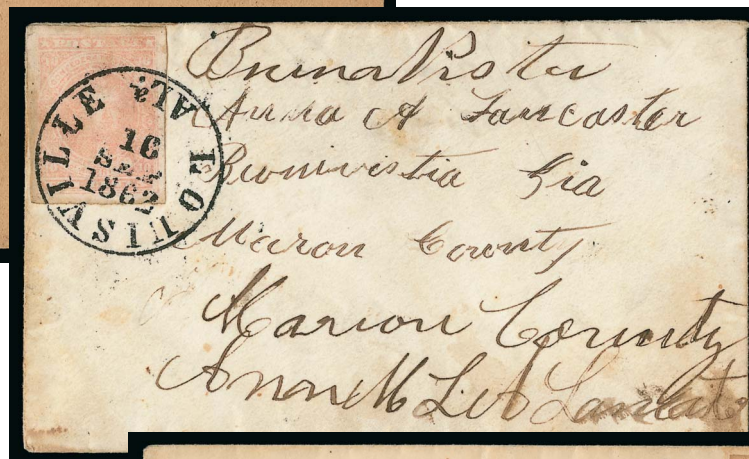 LOUISVILLE AL.
16
SEP
1862
Buena Vista
Anna A Lancaster
Beunivestia Gia
Maron County
Marion County
Ann M Lancaster